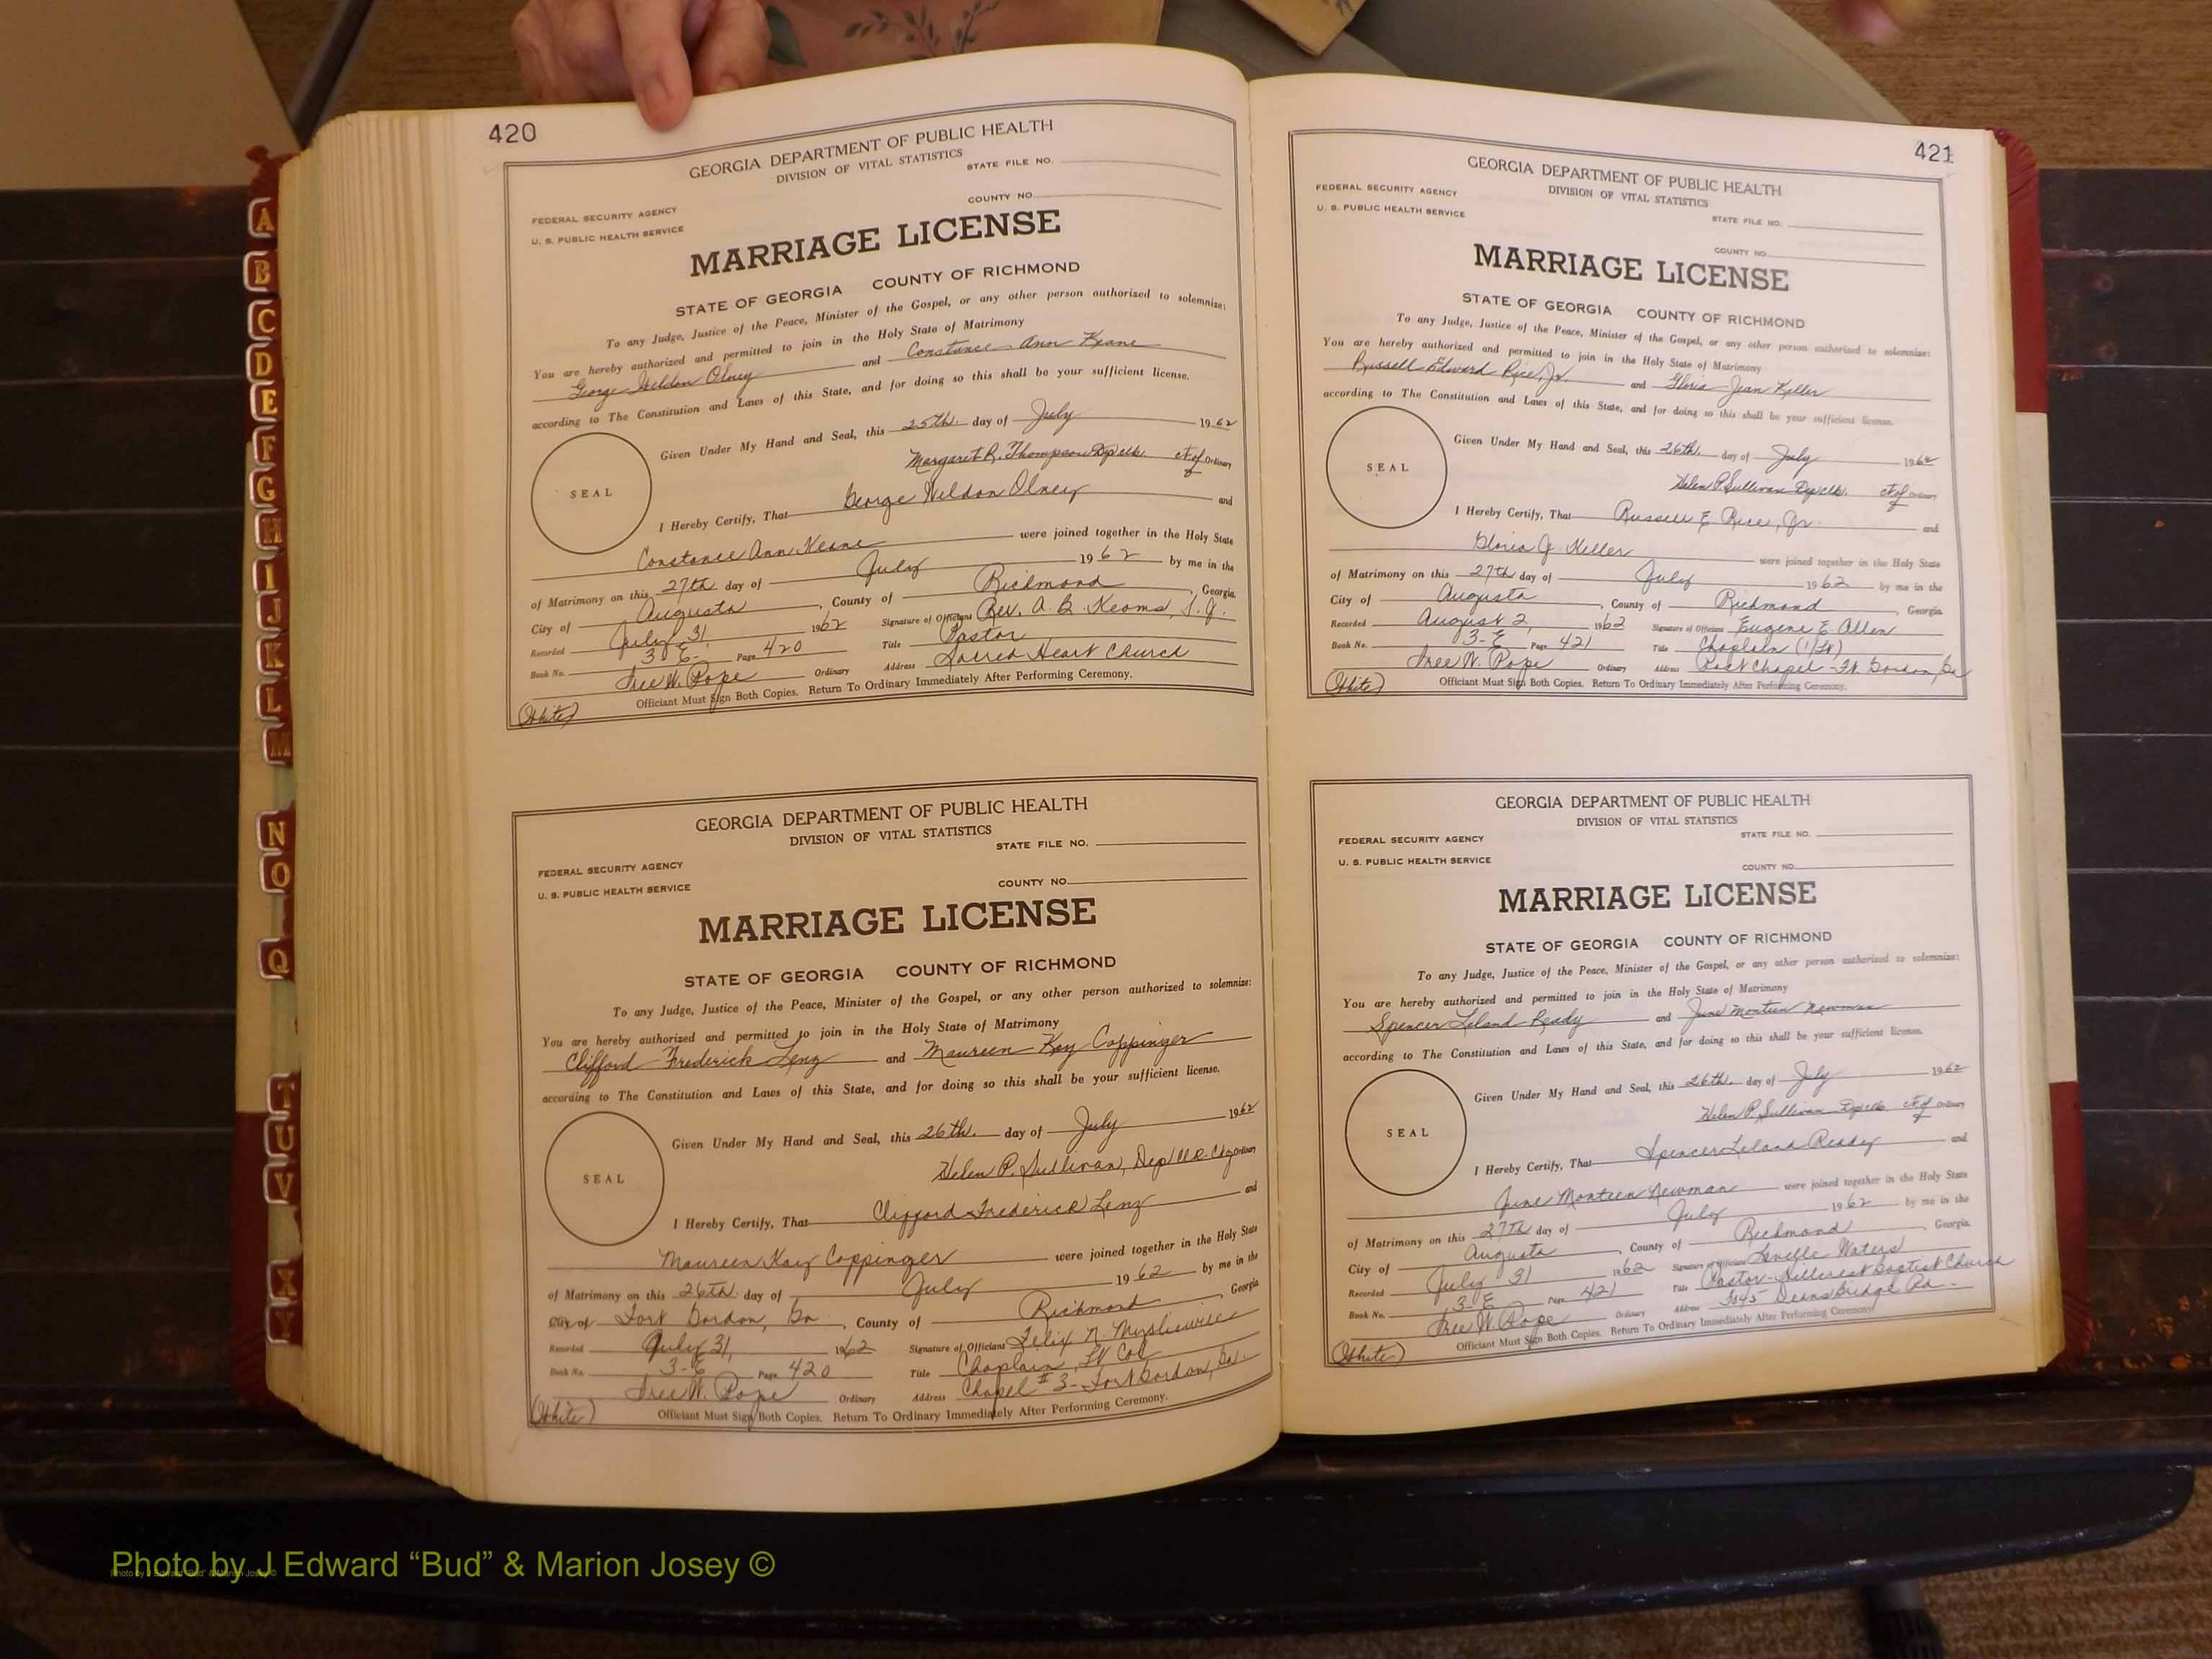 420
GEORGIA DEPARTMENT OF PUBLIC HEALTH
DIVISION OF VITAL STATISTICS
STATE FILE NO.
COUNTY NO.
FEDERAL SECURITY AGENCY
U. S. PUBLIC HEALTH SERVICE
MARRIAGE LICENSE
STATE OF GEORGIA COUNTY OF RICHMOND
To any Judge, Justice of the Peace, Minister of the Gospel, or any other person authorized to solemnize:
You are hereby authorized and permitted to join in the Holy State of Matrimony
George Weldon Olney and Constance Ann Keane
according to The Constitution and Laws of this State, and for doing so this shall be your sufficient license.
Given Under My Hand and Seal, this 25th. day of July 1962
Margaret R. Thompson Dep clk. Ct of Ordinary
SEAL
I Hereby Certify, That George Weldon Olney and
Constance Ann Keane were joined together in the Holy State
of Matrimony on this 27th day of July 1962 by me in the
City of Augusta, County of Richmond, Georgia.
Recorded July 31 1962 Signature of Officiant Rev. A. B. S. J.
Book No. 3-E- Page 420 Title Pastor
Tree W. Pope Ordinary Address Sacred Heart Church
Officiant Must Sign Both Copies. Return To Ordinary Immediately After Performing Ceremony.
(White)
GEORGIA DEPARTMENT OF PUBLIC HEALTH
DIVISION OF VITAL STATISTICS
STATE FILE NO.
FEDERAL SECURITY AGENCY
U. S. PUBLIC HEALTH SERVICE
COUNTY NO.
MARRIAGE LICENSE
STATE OF GEORGIA COUNTY OF RICHMOND
To any Judge, Justice of the Peace, Minister of the Gospel, or any other person authorized to solemnize:
You are hereby authorized and permitted to join in the Holy State of Matrimony
Clifford Frederick Lenz and Maureen Kay Coppinger
according to The Constitution and Laws of this State, and for doing so this shall be your sufficient license.
Given Under My Hand and Seal, this 26th. day of July 1962
Helen P. Sullivan, Dep Clk. Ordinary
SEAL
I Hereby Certify, That Clifford Frederick Lenz and
Maureen Kay Coppinger were joined together in the Holy State
of Matrimony on this 26th. day of July 1962 by me in the
City of Fort Gordon, Ga, County of Richmond Georgia
Recorded July 31, 1962 Signature of Officiant Felix N.
Book No. 3-E Page 420 Title Chaplain, Lt Col
Tree W. Pope Ordinary Address Chapel #3-Fort Gordon, Ga.
Officiant Must Sign Both Copies. Return To Ordinary Immediately After Performing Ceremony.
(White)
421
GEORGIA DEPARTMENT OF PUBLIC HEALTH
DIVISION OF VITAL STATISTICS
FEDERAL SECURITY AGENCY
U. S. PUBLIC HEALTH SERVICE
STATE FILE NO.
COUNTY NO.
MARRIAGE LICENSE
STATE OF GEORGIA COUNTY OF RICHMOND
To any Judge, Justice of the Peace, Minister of the Gospel, or any other person authorized to solemnize:
You are hereby authorized and permitted to join in the Holy State of Matrimony
Russell Edward Rice, Jr. and Gloria Jean Keller
according to The Constitution and Laws of this State, and for doing so this shall be your sufficient license.
Given Under My Hand and Seal, this 26th. day of July 1962
Helen P. Sullivan Dep clk. Ct of Ordinary
SEAL
I Hereby Certify, That Russell E. Rice, Jr. and
Gloria J. Keller were joined together in the Holy State
of Matrimony on this 27th day of July 1962 by me in the
City of Augusta, County of Richmond, Georgia.
Recorded August 2, 1962 Signature of Officiant Eugene E Allen
Book No. 3-E Page 421 Title Chaplain (1/Lt)
Tree W. Pope Ordinary Address Post Chapel - Ft. Gordon, Ga
Officiant Must Sign Both Copies. Return To Ordinary Immediately After Performing Ceremony.
(White)
GEORGIA DEPARTMENT OF PUBLIC HEALTH
DIVISION OF VITAL STATISTICS
STATE FILE NO.
FEDERAL SECURITY AGENCY
U. S. PUBLIC HEALTH SERVICE
COUNTY NO.
MARRIAGE LICENSE
STATE OF GEORGIA COUNTY OF RICHMOND
To any Judge, Justice of the Peace, Minister of the Gospel, or any other person authorized to solemnize:
You are hereby authorized and permitted to join in the Holy State of Matrimony
Spencer Leland Ready and June Monteen Newman
according to The Constitution and Laws of this State, and for doing so this shall be your sufficient license.
Given Under My Hand and Seal, this 26th. day of July 1962
Helen P. Sullivan Dep clk Ct of Ordinary
SEAL
I Hereby Certify, That Spencer Leland Ready and
June Monteen Newman were joined together in the Holy State
of Matrimony on this 27th day of July 1962 by me in the
City of Augusta, County of Richmond, Georgia
Recorded July 31 1962 Signature of Officiant Waters
Book No. 3-E Page 421 Title Pastor-Hillcrest Baptist Church
Tree W. Pope Ordinary Address 3045 Deans Bridge Rd.
Officiant Must Sign Both Copies. Return To Ordinary Immediately After Performing Ceremony
(White)
A
B
C
D
E
F
G
H
I
J
K
L
M
N
O
Q
T
U
V
X
Y
Photo by J Edward “Bud” & Marion Josey ©
Photo by J Edward "Bud" & Marion Josey ©